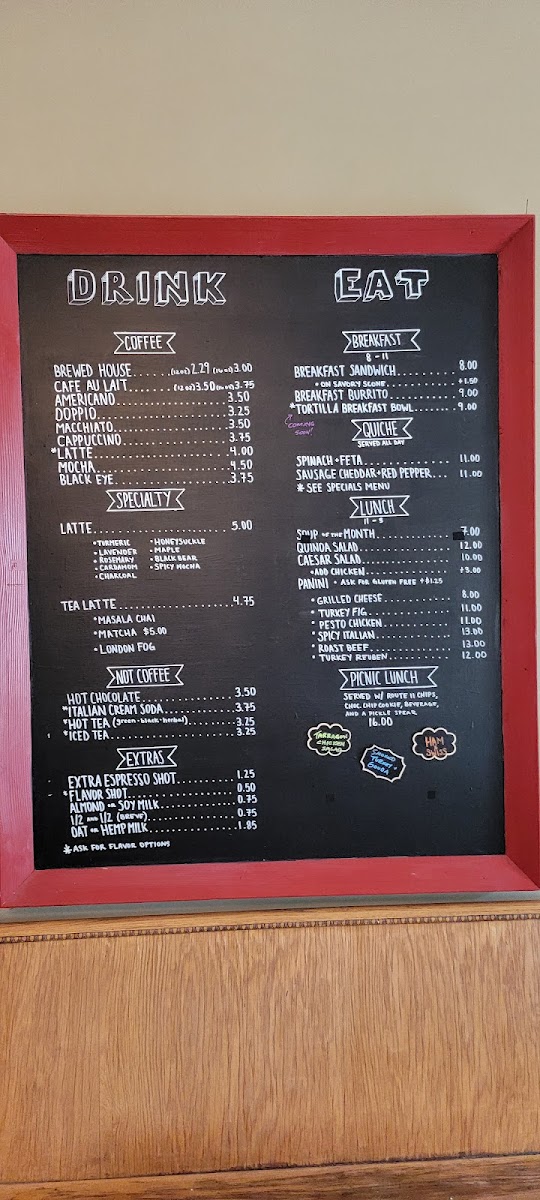 DRINK
COFFEE
BREWED HOUSE (12 oz) 2.29 (16 oz) 3.00
CAFE AU LAIT (12 oz) 3.50 (16 oz) 3.75
AMERICANO 3.50
DOPPIO 3.25
MACCHIATO 3.50
CAPPUCCINO 3.75
*LATTE 4.00
MOCHA 4.50
BLACK EYE 3.75
SPECIALTY
LATTE 5.00
• TURMERIC • HONEYSUCKLE
• LAVENDER • MAPLE
• ROSEMARY • BLACK BEAR
• CARDAMOM • SPICY MOCHA
• CHARCOAL
TEA LATTE 4.75
• MASALA CHAI
• MATCHA $5.00
• LONDON FOG
NOT COFFEE
HOT CHOCOLATE 3.50
*ITALIAN CREAM SODA 3.75
*HOT TEA (green-black-herbal) 3.25
*ICED TEA 3.25
EXTRAS
EXTRA ESPRESSO SHOT 1.25
*FLAVOR SHOT 0.50
ALMOND OR SOY MILK 0.75
1/2 AND 1/2 (BREVE) 0.75
OAT OR HEMP MILK 1.85
* ASK FOR FLAVOR OPTIONS
EAT
BREAKFAST
8-11
BREAKFAST SANDWICH 8.00
• ON SAVORY SCONE +1.50
BREAKFAST BURRITO 9.00
*TORTILLA BREAKFAST BOWL 9.00
COMING SOON!
QUICHE
SERVED ALL DAY
SPINACH + FETA 11.00
SAUSAGE CHEDDAR + RED PEPPER 11.00
* SEE SPECIALS MENU
LUNCH
11-3
SOUP OF THE MONTH 7.00
QUINOA SALAD 12.00
CAESAR SALAD 10.00
• ADD CHICKEN +3.00
PANINI • ASK FOR GLUTEN FREE +$1.25
• GRILLED CHEESE 8.00
• TURKEY FIG 11.00
• PESTO CHICKEN 11.00
• SPICY ITALIAN 13.00
• ROAST BEEF 13.00
• TURKEY REUBEN 12.00
PICNIC LUNCH
SERVED W/ ROUTE 11 CHIPS,
CHOC. CHIP COOKIE, BEVERAGE,
AND A PICKLE SPEAR
16.00
TARRAGON
CHICKEN
SALAD
SMOKED
TURKEY +
GOUDA
HAM
+
SWISS